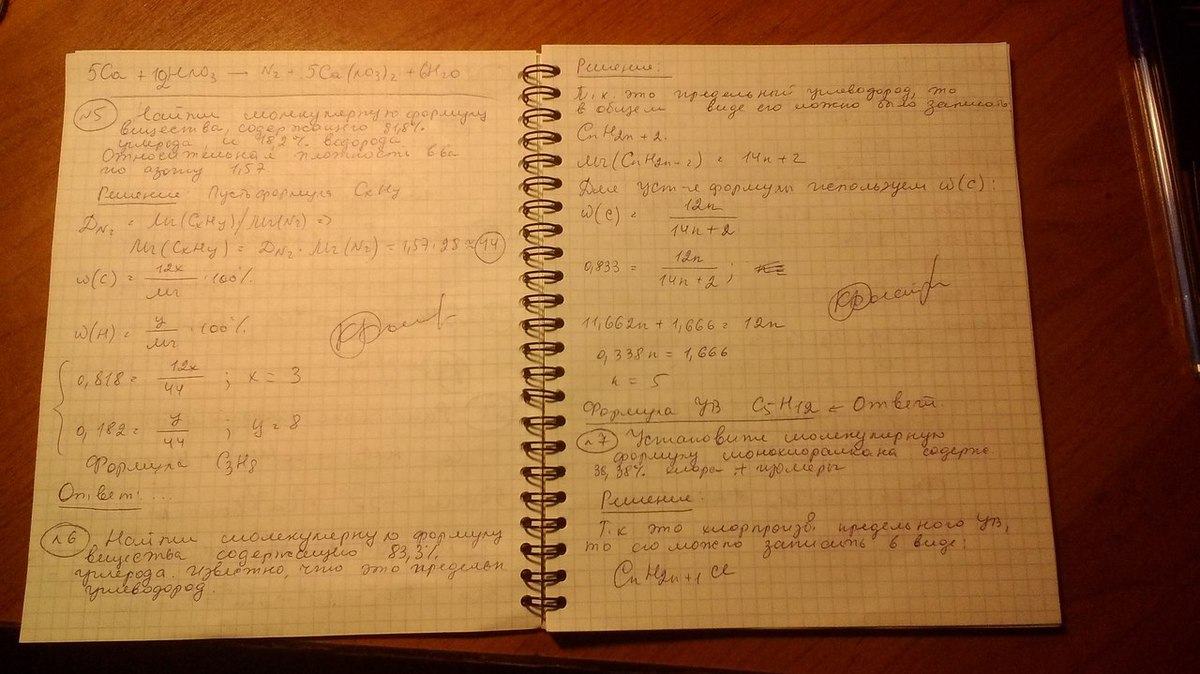 5Ca + 12HNO3 → N2 + 5Ca(NO3)2 + 6H2O
№5 Найти молекулярную формулу
вещества, содержащего 81,8%
углерода и 18,2% водорода
Относительная плотность в-ва
по азоту 1,57
Решение Пусть формула CxHy
DN2 = Mr(CxHy)/Mr(N2) =>
Mr(CxHy) = DN2 · Mr(N2) = 1,57·28 ≈ 44
w(C) = 12x/Mr · 100%
w(H) = y/Mr · 100%
0,818 = 12x/44 ; x = 3
0,182 = y/44 ; y = 8
Формула C3H8
Ответ: ....
№6 Найти молекулярную формулу
вещества содержащего 83,3%
углерода. Известно, что это пределн
углеводород.
Решение:
Т.к. это предельный углеводород, то
в общем виде его можно было записать
CnH2n+2.
Mr(CnH2n+2) = 14n+2
Для уст-я формулы используем w(C):
w(C) = 12n/14n+2
0,833 = 12n/14n+2 ;
11,662n + 1,666 = 12n
0,338n = 1,666
n = 5
Формула УВ C5H12 ← Ответ.
№7 Установити молекулярную
формулу монохлоралкана содерж.
38,38% хлора. + изомеры
Решение.
Т.к это хлорпроизв. предельного УВ,
то его можно записать в виде:
CnH2n+1Cl